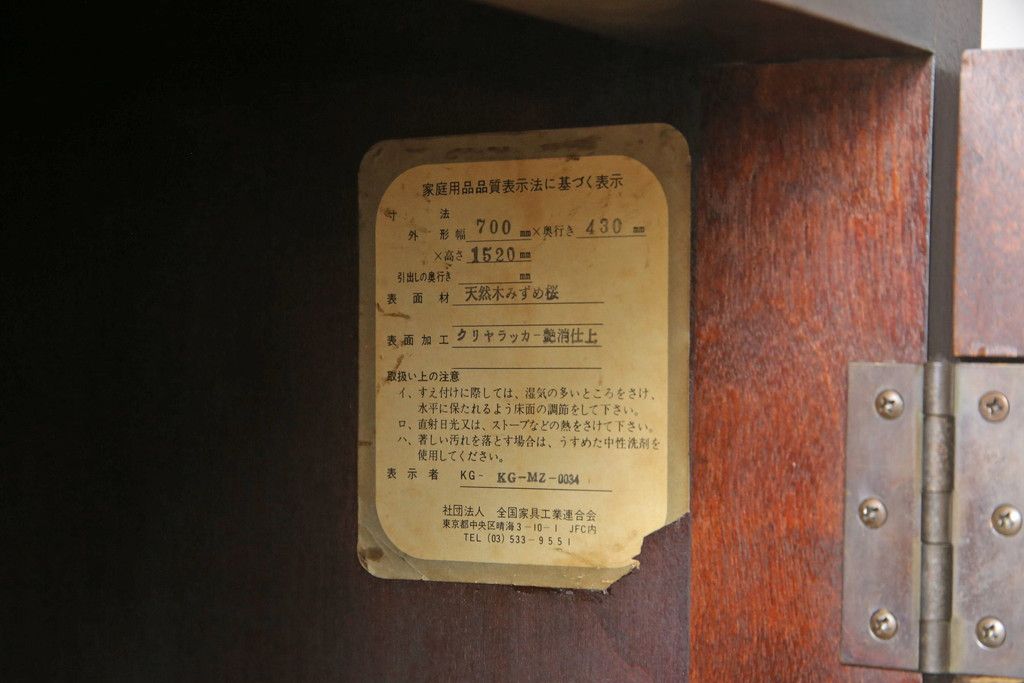 家庭用品品質表示法に基づく表示
寸法
外形幅 700 mm×奥行き 430 mm
×高さ 1520 mm
引出しの奥行き mm
表面材 天然木みずめ桜
表面加工 クリヤラッカー艶消仕上
取扱い上の注意
イ、すえ付けに際しては、湿気の多いところをさけ、
水平に保たれるよう床面の調節をして下さい。
ロ、直射日光又は、ストーブなどの熱をさけて下さい。
ハ、著しい汚れを落とす場合は、うすめた中性洗剤を
使用してください。
表示者 KG- KG-MZ-0034
社団法人 全国家具工業連合会
東京都中央区晴海3-10-1 JFC内
TEL (03) 533-9551